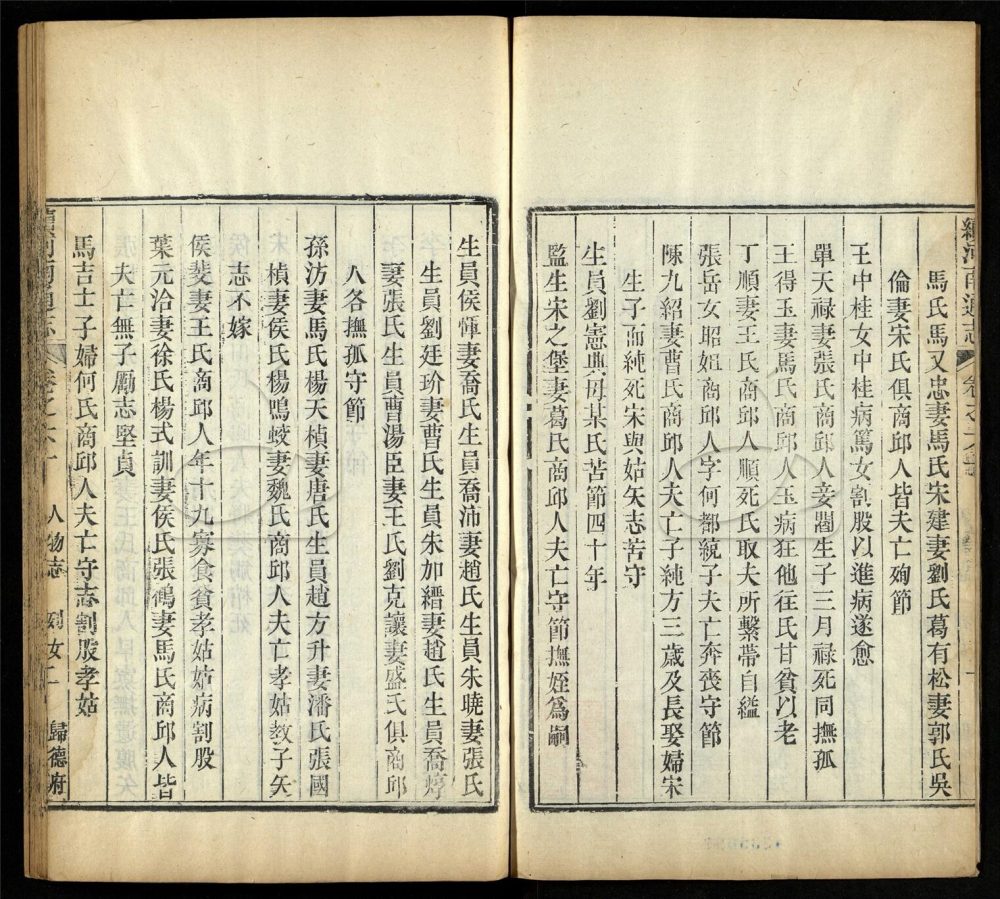 續河南通志
卷之六
馬氏馬又忠妻馬氏宋建妻劉氏葛有松妻郭氏吳
倫妻宋氏俱商邱人皆夫亡殉節
王中桂女中桂病篤女割股以進病遂愈
單天祿妻張氏商邱人妾閻生子三月祿死同撫孤
王得玉妻馬氏商邱人玉病狂他往氏甘貧以老
丁順妻王氏商邱人順死氏取夫所繫帶自縊
張岳女昭姐商邱人字何都統子夫亡奔喪守節
陳九紹妻曹氏商邱人夫亡子純方三歲及長娶婦宋
生子而純死宋與姑矢志苦守
生員劉憲典母某氏苦節四十年
監生宋之堡妻葛氏商邱人夫亡守節撫姪爲嗣
生員侯惲妻喬氏生員喬沛妻趙氏生員朱曉妻張氏
生員劉廷玠妻曹氏生員朱加縉妻趙氏生員喬焞
妻張氏生員曹湯臣妻王氏劉克讓妻盛氏俱商邱
人各撫孤守節
孫汸妻馬氏楊天楨妻唐氏生員趙方升妻潘氏張國
楨妻侯氏楊鳴蛟妻魏氏商邱人夫亡孝姑教子矢
志不嫁
侯斐妻王氏商邱人年十九寡食貧孝姑姑病割股
葉元治妻徐氏楊式訓妻侯氏張鴻妻馬氏商邱人皆
夫亡無子勵志堅貞
馬吉士子婦何氏商邱人夫亡守志割股孝姑
續河南通志
卷之六十
人物志
列女二
歸德府